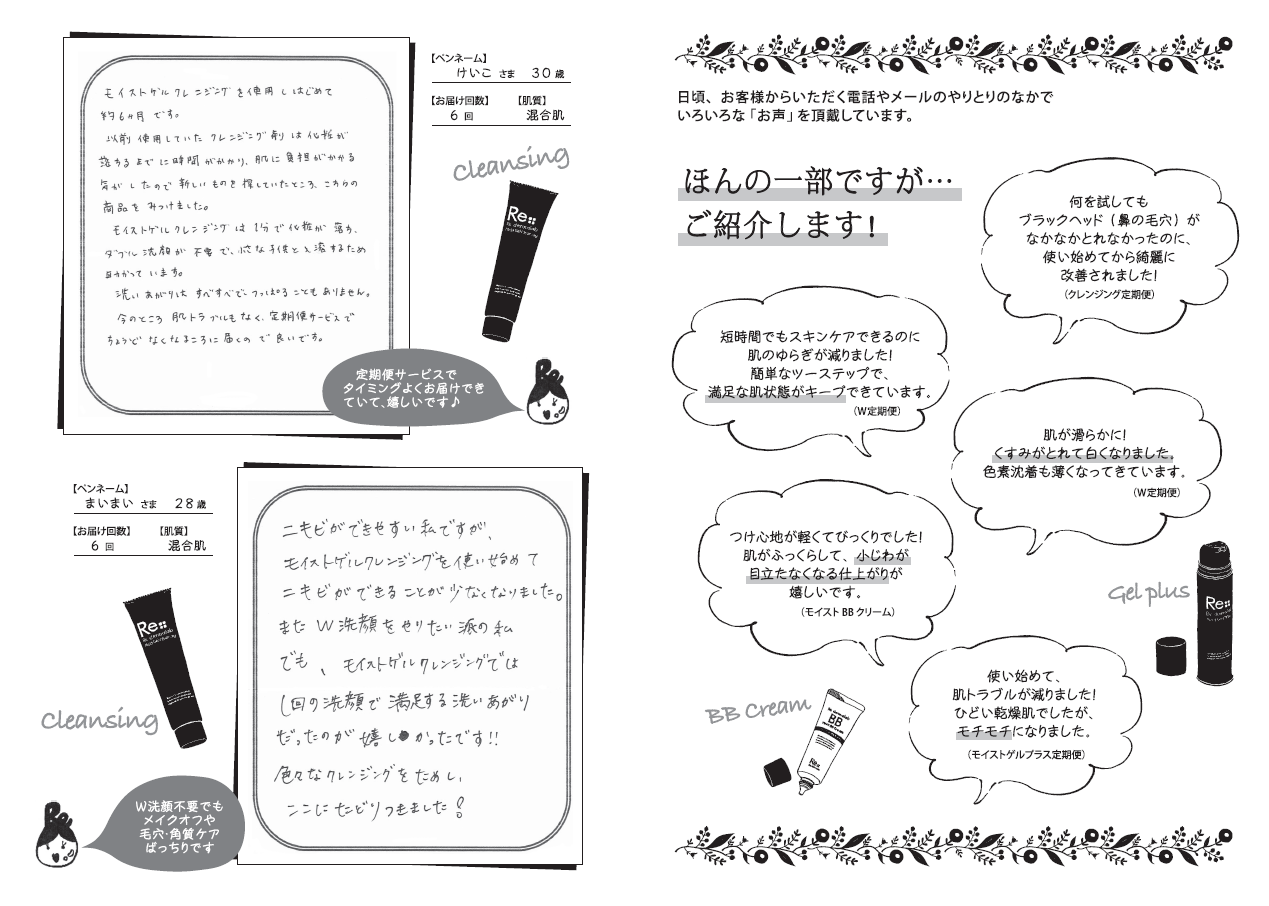 【ペンネーム】
けいこ さま 30 歳
【お届け回数】 【肌質】
6 回 混合肌
モイストゲルクレンジングを使用しはじめて
約6ヶ月です。
以前使用していたクレンジング剤は化粧が
落ちるまでに時間がかかり、肌に負担がかかる
気がしたので新しいものを探していたところ、こちらの
商品をみつけました。
モイストゲルクレンジングは1分で化粧が落ち、
ダブル洗顔が不要で、小さな子供と入浴するため
助かっています。
洗いあがりはすべすべで、つっぱることもありません。
今のところ肌トラブルもなく、定期便サービスで
ちょうどなくなるころに届くので良いです。
Cleansing
Re::
定期便サービスで
タイミングよくお届けでき
ていて、嬉しいです♪
【ペンネーム】
まいまい さま 28 歳
【お届け回数】 【肌質】
6 回 混合肌
ニキビができやすい私ですが、
モイストゲルクレンジングを使い始めて
ニキビができることが少なくなりました。
また W洗顔をやりたい派の私
でも、モイストゲルクレンジングでは
1回の洗顔で満足する洗いあがり
だったのが嬉しかったです!!
色々なクレンジングをためし、
ここにたどりつきました!
Re::
Cleansing
W洗顔不要でも
メイクオフや
毛穴・角質ケア
ばっちりです
日頃、お客様からいただく電話やメールのやりとりのなかで
いろいろな「お声」を頂戴しています。
ほんの一部ですが…
ご紹介します!
何を試しても
ブラックヘッド（鼻の毛穴）が
なかなかとれなかったのに、
使い始めてから綺麗に
改善されました!
（クレンジング定期便）
短時間でもスキンケアできるのに
肌のゆらぎが減りました!
簡単なツーステップで、
満足な肌状態がキープできています。
（W定期便）
肌が滑らかに!
くすみがとれて白くなりました。
色素沈着も薄くなってきています。
（W定期便）
つけ心地が軽くてびっくりでした!
肌がふっくらして、小じわが
目立たなくなる仕上がりが
嬉しいです。
（モイスト BB クリーム）
Gel plus
Re::
使い始めて、
肌トラブルが減りました!
ひどい乾燥肌でしたが、
モチモチになりました。
（モイストゲルプラス定期便）
BB Cream
BB
Re::